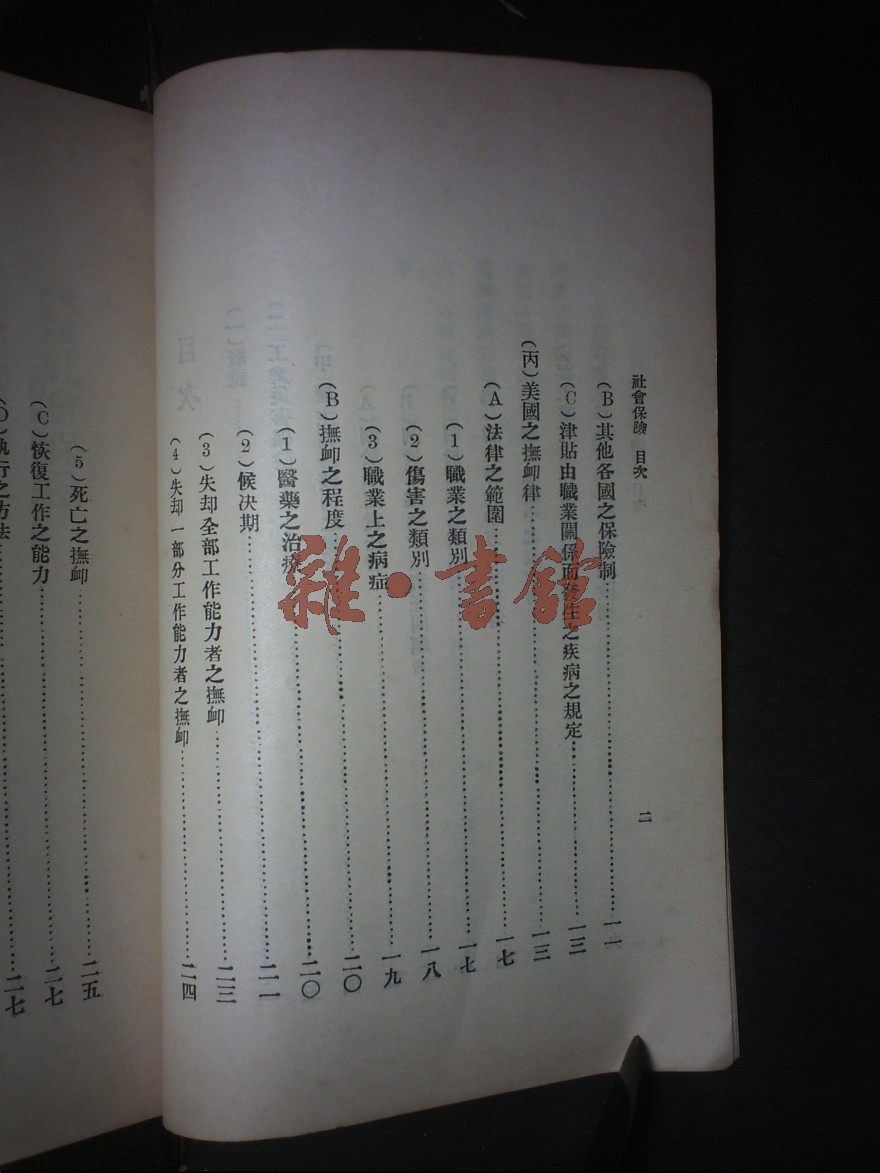 社會保險 目次 二
(B)其他各國之保險制……一一
(C)津貼由職業關係而發生之疾病之規定……一三
(丙)美國之撫卹律……一三
(A)法律之範圍……一七
(1)職業之類別……一七
(2)傷害之類別……一八
(3)職業上之病症……一九
(B)撫卹之程度……二〇
(1)醫藥之治療……二〇
(2)候決期……二一
(3)失却全部工作能力者之撫卹……二三
(4)失却一部分工作能力者之撫卹……二四
(5)死亡之撫卹……二五
(C)恢復工作之能力……二七
執行之方法……二七
雜·書館